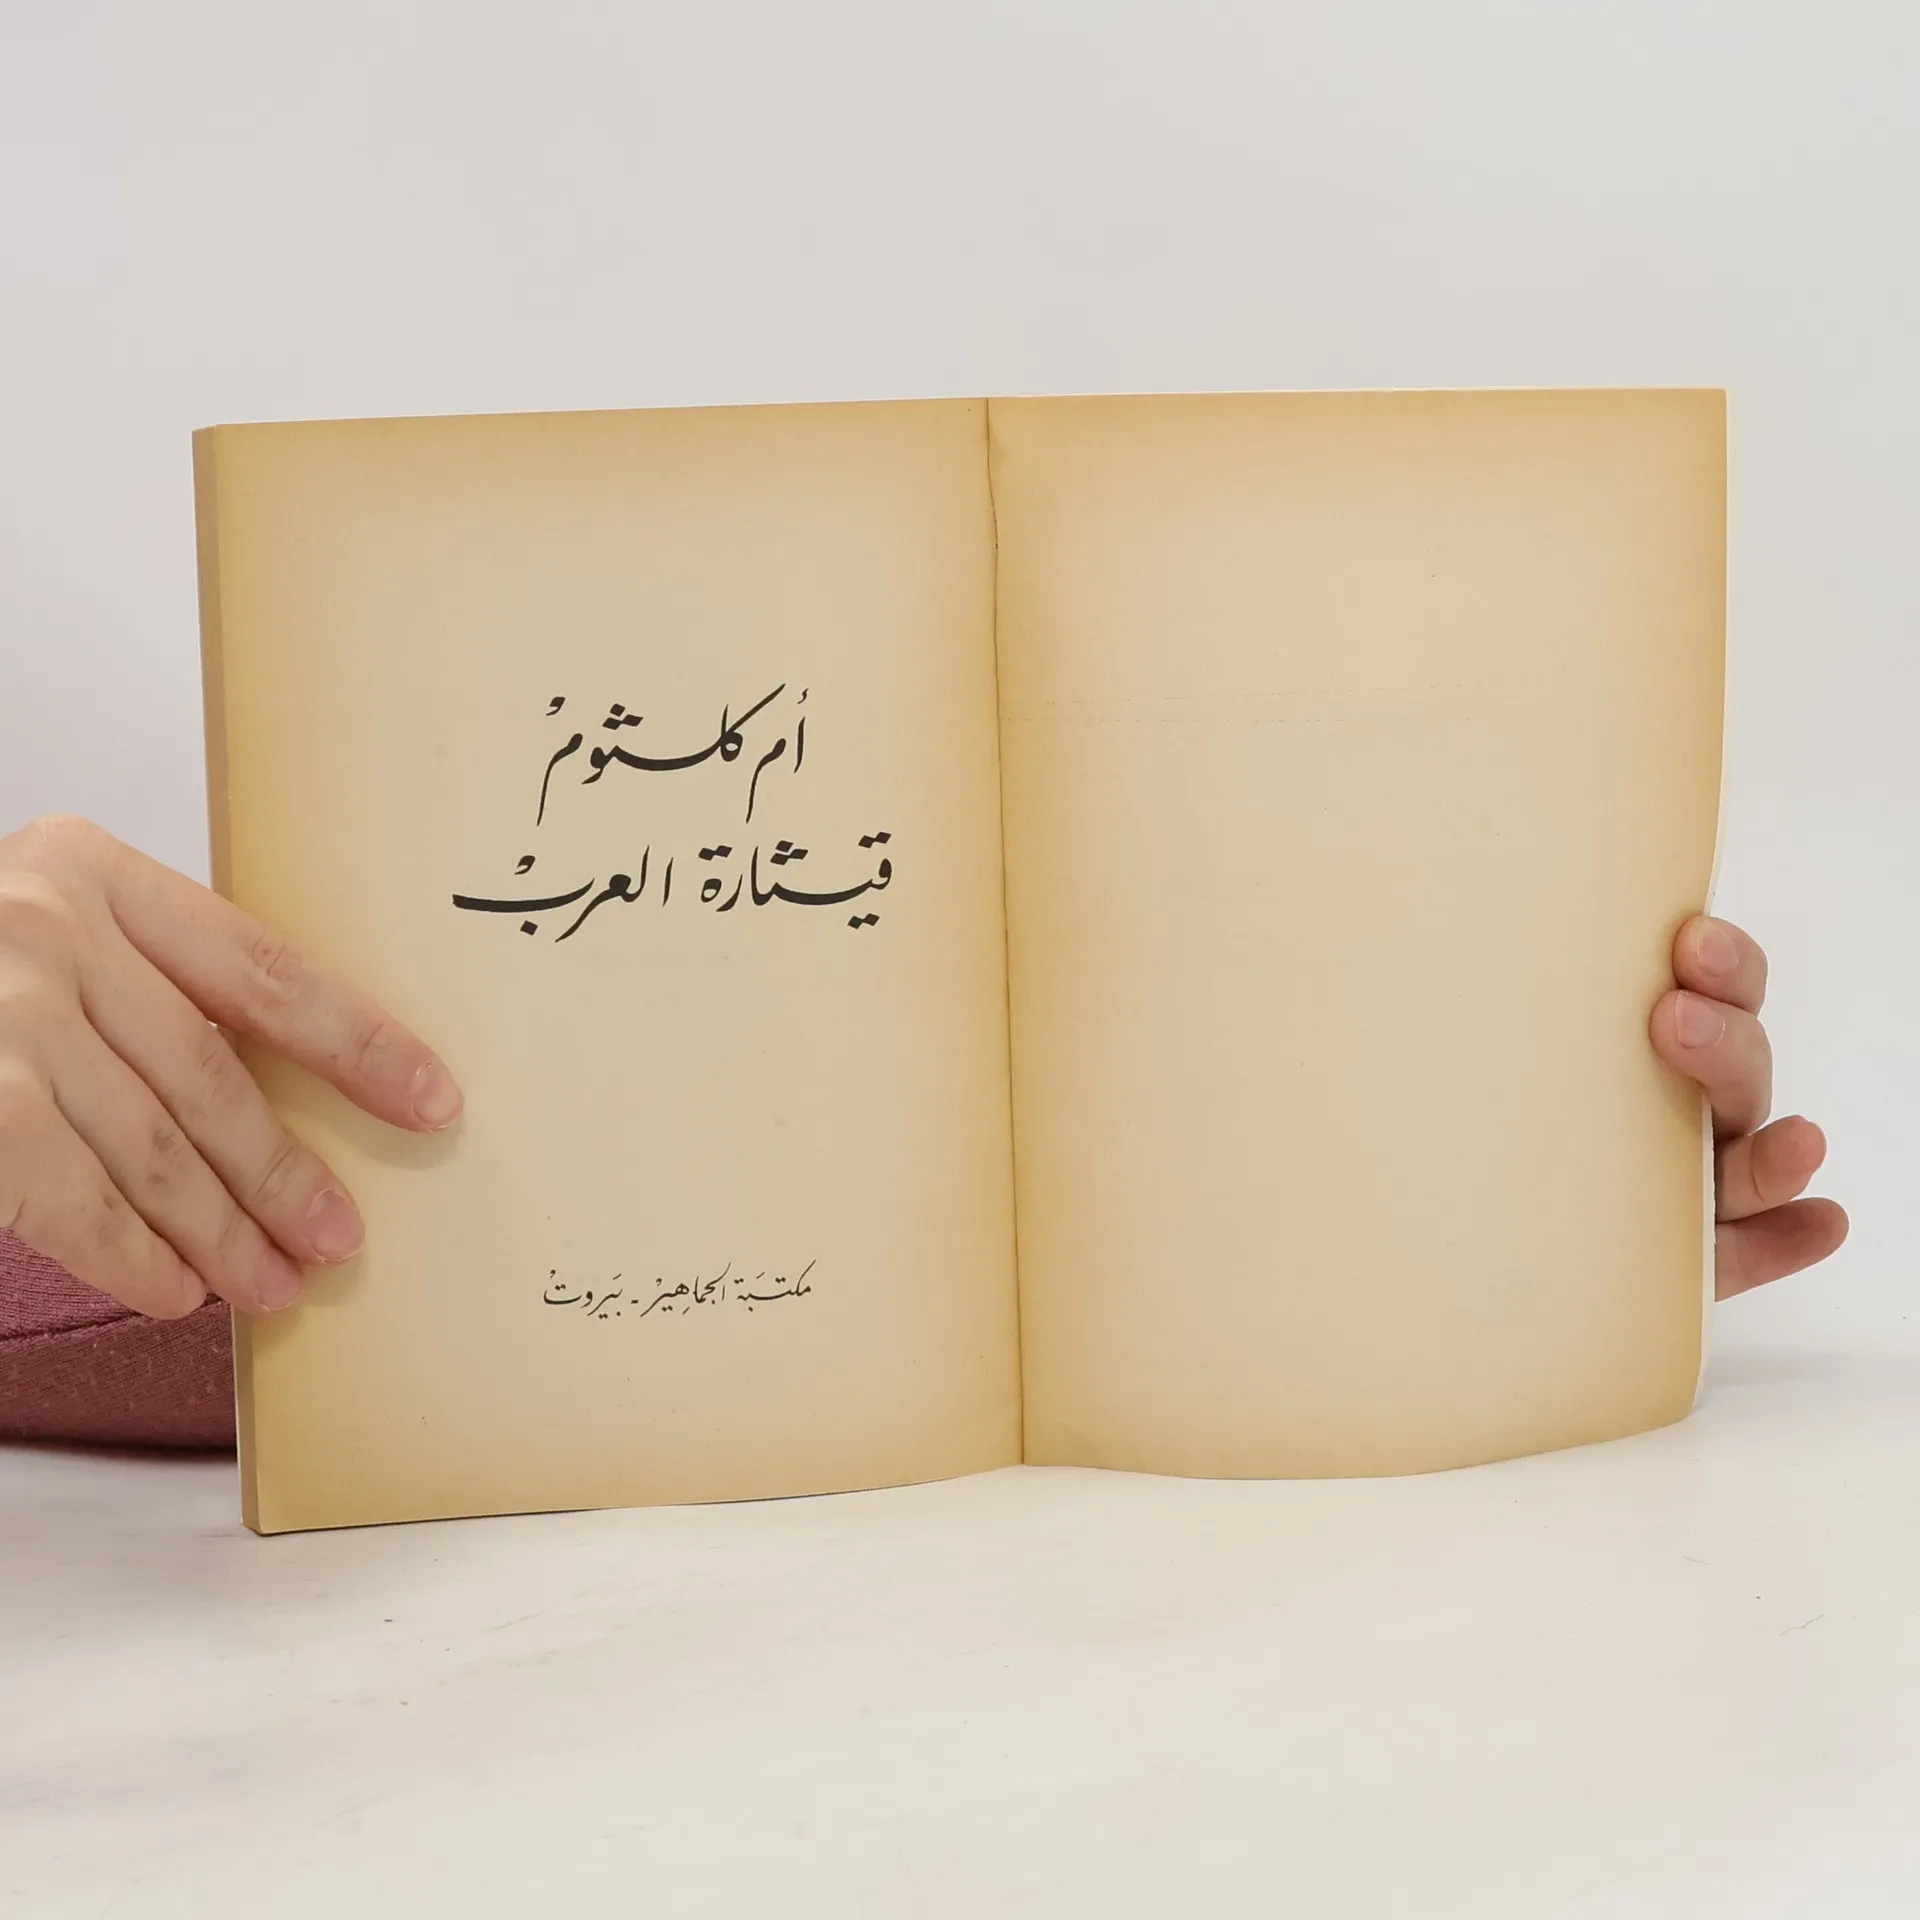 أم كلثوم
قيثارة العرب
مكتبة الجماهير - بيروت